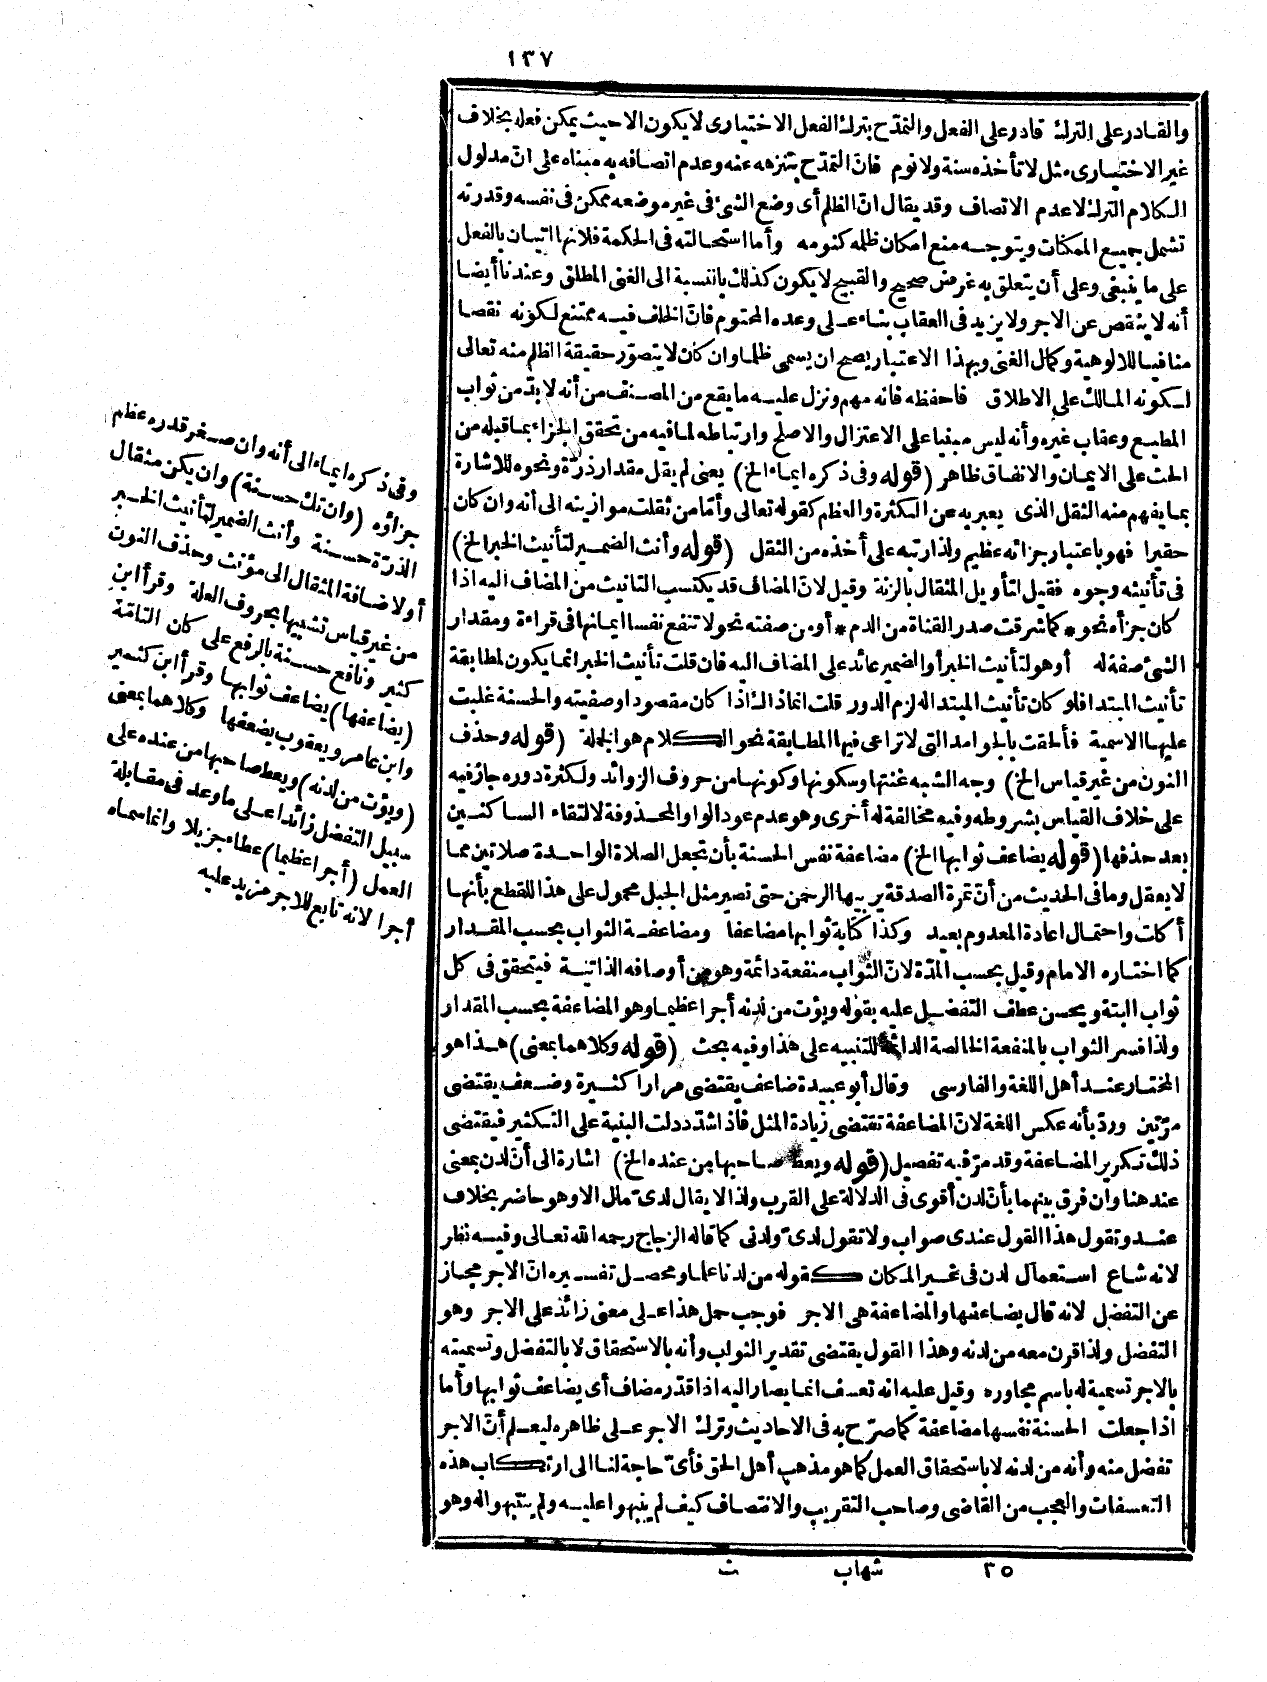 ١٣٧
والقادر على الترك قادر على الفعل والتمدّح بترك الفعل الاختيارى لا يكون الا حيث يمكن فعله بخلاف
غير الاختيارى مثل لا تأخذه سنة ولا نوم فانّ التمدّح بتنزهه عنه وعدم اتصافه به مبناه على انّ مدلول
الكلام الترك لا عدم الاتصاف وقد يقال انّ الظلم أى وضع الشئ فى غير موضعه ممكن فى نفسه وقدرته
تشمل جميع الممكنات ويتوجه منع امكان ظلمه كنومه وأما استحالته فى الحكمة فلانها اتيان بالفعل
على ما ينبغى وعلى أن يتعلق به غرض صحيح والقبيح لا يكون كذلك بالنسبة الى الغنى المطلق وعندنا أيضا
أنه لا ينقص عن الاجر ولا يزيد فى العقاب بناء على وعده المحتوم فانّ الخلف فيه ممتنع لكونه نقصا
منافيا للالوهية وكمال الغنى وبهذا الاعتبار يصح ان يسمى ظلما وان كان لا يتصوّر حقيقة الظلم منه تعالى
لكونه المالك على الاطلاق فاحفظه فانه مهم ونزل عليه ما يقع من المصنف من أنه لا بدّ من ثواب
المطيع وعقاب غيره وأنه ليس مبنيا على الاعتزال والاصلح وارتباطه لما فيه من تحقق الجزاء بما قبله من
الحث على الايمان والانفاق ظاهر (قوله وفى ذكره ايماء الخ) يعنى لم يقل مقدار ذرّة ونحوه للاشارة
بما يفهم منه الثقل الذى يعبر به عن الكثرة والعظم كقوله تعالى وأمّا من ثقلت موازينه الى أنه وان كان
حقيرا فهو باعتبار جزائه عظيم ولذا رتبه على أخذه من الثقل (قوله وأنث الضمير لتأنيث الخبر الخ)
فى تأنيثه وجوه فقيل لتأويل المثقال بالزنة وقيل لانّ المضاف قد يكتسب التانيث من المضاف اليه اذا
كان جزأه نحو * كما شرقت صدر القناة من الدم * أو من صفته نحو لا تنفع نفسا ايمانها فى قراءة ومقدار
الشئ صفة له أو هو لتأنيث الخبر أو الضمير عائد على المضاف اليه فان قلت تأنيث الخبر انما يكون لمطابقة
تأنيث المبتدا فلو كان تأنيث المبتدا له لزم الدور قلت انما ذاك اذا كان مقصودا وصفيته والحسنة غلبت
عليها الاسمية فألحقت بالجوامد التى لا تراعى فيها المطابقة نحو الكلام هو الجملة (قوله وحذف
النون من غير قياس الخ) وجه الشبه غنتها وسكونها وكونها من حروف الزوائد ولكثرة دوره جاز فيه
على خلاف القياس بشروطه وفيه مخالفة له أخرى وهو عدم عود الواو المحذوفة لالتقاء الساكنين
بعد حذفها (قوله يضاعف ثوابها الخ) مضاعفة نفس الحسنة بأن تجعل الصلاة الواحدة صلاتين مما
لا يعقل وما فى الحديث من أنّ ثمرة الصدقة يربيها الرحمن حتى تصير مثل الجبل محمول على هذا للقطع بأنها
أكلت واحتمال اعادة المعدوم بعيد وكذا كتابة ثوابها مضاعفا ومضاعفة الثواب بحسب المقدار
كما اختاره الامام وقيل بحسب المدّة لانّ الثواب منفعة دائمة وهو من أوصافه الذاتية فيتحقق فى كل
ثواب البتة ويحسن عطف التفضيل عليه بقوله ويؤت من لدنه أجرا عظيما وهو المضاعفة بحسب المقدار
ولذا فسر الثواب بالمنفعة الخالصة الدائمة للتنبيه على هذا وفيه بحث (قوله وكلاهما بمعنى) هذا هو
المختار عند أهل اللغة والفارسى وقال أبو عبيدة ضاعف يقتضى مرارا كثيرة وضعف يقتضى
مرّتين وردّ بأنه عكس اللغة لانّ المضاعفة تقتضى زيادة المثل فاذا شدّد دلت البنية على التكثير فيقتضى
ذلك تكرير المضاعفة وقد مرّ فيه تفصيل (قوله ويعط صاحبها من عنده الخ) اشارة الى أنّ لدن بمعنى
عند هنا وان فرق بينهما بأنّ لدن أقوى فى الدلالة على القرب ولذا لا يقال لدىّ مال الا وهو حاضر بخلاف
عند وتقول هذا القول عندى صواب ولا تقول لدىّ ولدنى كما قاله الزجاج رحمه الله تعالى وفيه نظر
لانه شاع استعمال لدن فى غير المكان كقوله من لدنا علما ومحصل تفسيره انّ الاجر مجاز
عن التفضل لانه قال يضاعفها والمضاعفة هى الاجر فوجب حمل هذا على معنى زائد على الاجر وهو
التفضل ولذا قرن معه من لدنه وهذا القول يقتضى تقدير الثواب وأنه بالاستحقاق لا بالتفضل وتسميته
بالاجر تسمية له باسم مجاوره وقيل عليه انه تعسف انما يصار اليه اذا قدّر مضاف أى يضاعف ثوابها وأما
اذا جعلت الحسنة نفسها مضاعفة كما صرّح به فى الاحاديث وترك الاجر على ظاهره ليعلم أنّ الاجر
تفضل منه وأنه من لدنه لا باستحقاق العمل كما هو مذهب أهل الحق فأىّ حاجة لنا الى ارتكاب هذه
التعسفات والعجب من القاضى وصاحب التقريب والانتصاف كيف لم ينبهوا عليه ولم يتنبهوا له وهو
وفى ذكره ايماء الى أنه وان صغر قدره عظم
جزاؤه (وان تك حسنة) وان يكن مثقال
الذرّة حسنة وأنث الضمير لتأنيث الخبر
أو لاضافة المثقال الى مؤنث وحذف النون
من غير قياس تشبيها بحروف العلة وقرأ ابن
كثير ونافع حسنة بالرفع على كان التامّة
(يضاعفها) يضاعف ثوابها وقرأ ابن كثير
وابن عامر ويعقوب يضعفها وكلاهما بمعنى
(ويؤت من لدنه) ويعط صاحبها من عنده على
سبيل التفضل زائدا على ما وعد فى مقابلة
العمل (أجرا عظيما) عطاء جزيلا وانما سماه
أجرا لانه تابع للاجر مزيد عليه
٣٥ شهاب ث